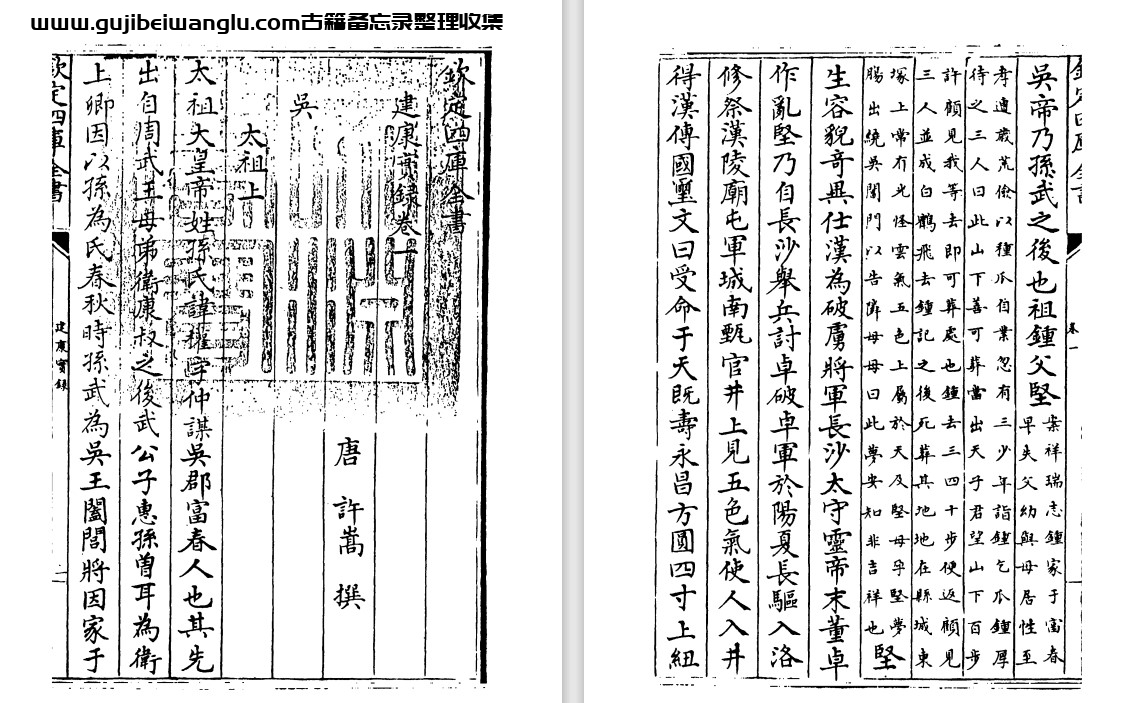 www.gujibeiwanglu.com古籍备忘录整理收集
欽定四庫全書
建康實録卷一
唐 許嵩 撰
吳
太祖上
太祖大皇帝姓孫氏諱權字仲謀吳郡富春人也其先
出自周武王母弟衛康叔之後武公子惠孫曽耳為衛
上卿因以孫為氏春秋時孫武為吳王闔閭將因家于
欽定四庫全書
建康實録
吳帝乃孫武之後也祖鍾父堅
案祥瑞志鍾家于富春
早失父幼與母居性至
孝遭歲荒儉以種瓜自業忽有三少年詣鍾乞瓜鍾厚
待之三人曰此山下善可葬當出天子君望山下百步
許顧見我等去即可葬處也鍾去三四十步便返顧見
三人並成白鶴飛去鍾記之後死葬其地地在縣城東
塚上常有光怪雲氣五色上屬於天及堅母孕堅夢
腸出繞吳閶門以告鄰母母曰此夢安知非吉祥也
堅
生容貌竒異仕漢為破虜將軍長沙太守靈帝末董卓
作亂堅乃自長沙舉兵討卓破卓軍於陽夏長驅入洛
修祭漢陵廟屯軍城南甄官井上見五色氣使人入井
得漢傳國璽文曰受命于天既壽永昌方圓四寸上紐